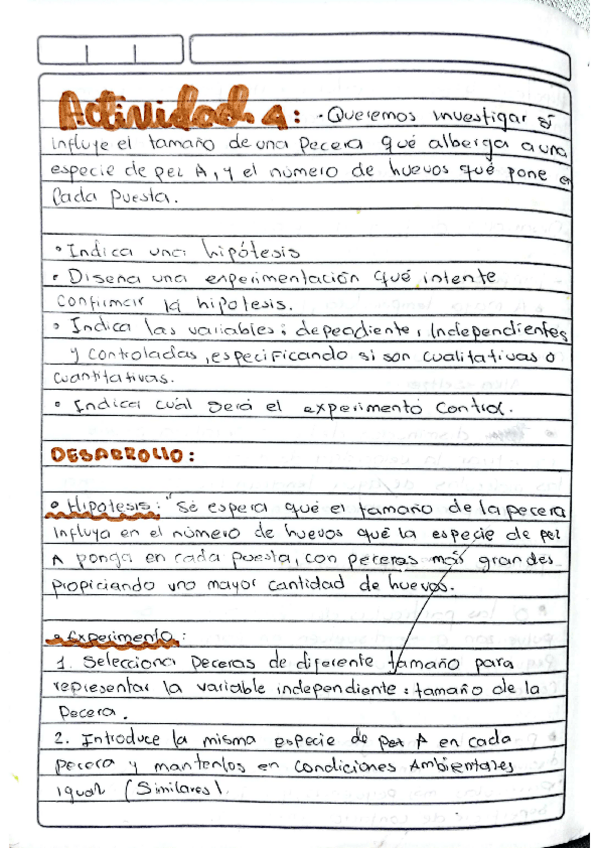 Actividad 1: · Queremos investigar si
influye el tamaño de una pecera qué alberga a una
especie de pez A, y el número de huevos qué pone en
Cada Puesta.
• Indica una hipótesis
• Diseña una experimentación qué intente
confirmar la hipotesis.
• Indica las variables: dependiente, Independientes
y controladas, especificando si son cualitativas o
cuantitativas.
• Indica cuál será el experimento Control.
DESARROLLO:
• Hipotesis: "Sé espera qué el tamaño de la pecera
Influya en el número de huevos qué la especie de pez
A ponga en cada puesta, con peceras más grandes
propiciando una mayor cantidad de huevos.
• Experimento:
1. Selecciona peceras de diferente tamaño para
representar la variable independiente: tamaño de la
Pecera.
2. Introduce la misma especie de pez A en cada
pecera y mantenlos en condiciones Ambientales
igual (Similares).